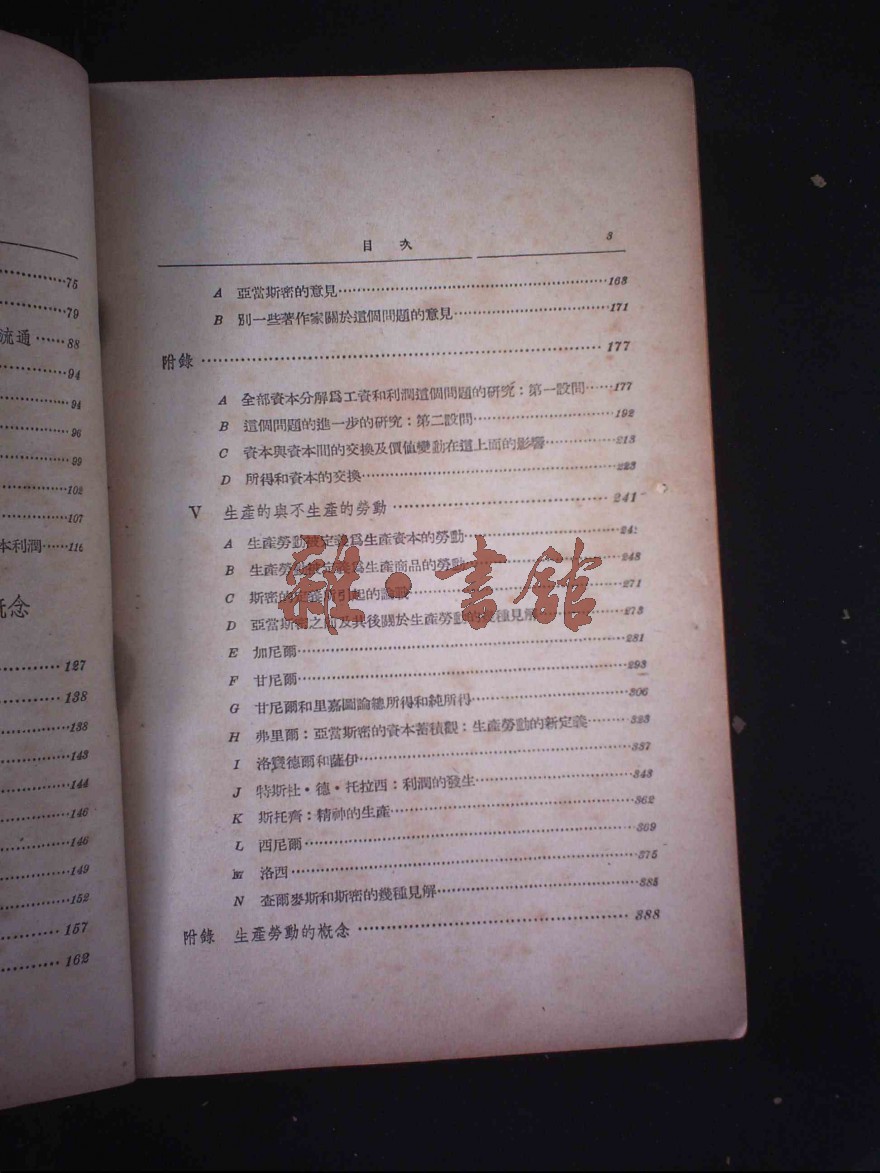 75
79
流通……88
94
94
96
99
102
107
本利潤……116
概念
127
138
138
143
144
146
146
149
152
157
162
目 次 3
A 亞當斯密的意見……168
B 別一些著作家關於這個問題的意見……171
附錄……177
A 全部資本分解爲工資和利潤這個問題的研究：第一設問……177
B 這個問題的進一步的研究：第二設問……192
C 資本與資本間的交換及價値變動在這上面的影響……213
D 所得和資本的交換……223
V 生產的與不生產的勞動……241
A 生產勞動被定義爲生產資本的勞動……24
B 生產勞動被定義爲生產商品的勞動……248
C 斯密的定義所引起的論戰……271
D 亞當斯密之前及其後關於生產勞動的幾種見解……273
E 加尼爾……281
F 甘尼爾……293
G 甘尼爾和里嘉圖論總所得和純所得……306
H 弗里爾：亞當斯密的資本蓄積觀：生產勞動的新定義……323
I 洛竇德爾和薩伊……337
J 特斯杜·德·托拉西：利潤的發生……343
K 斯托齊：精神的生產……362
L 西尼爾……369
M 洛西……375
N 查爾麥斯和斯密的幾種見解……385
附錄 生產勞動的概念……388
雜·書館